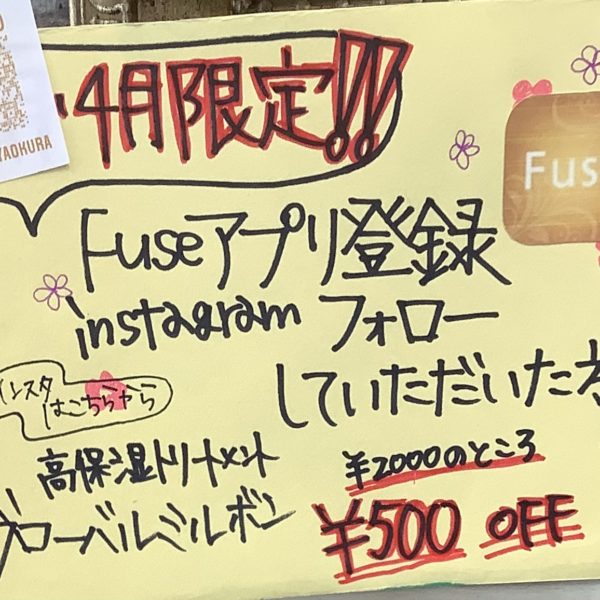 YAOKURA
・4月限定!!
Fuse
Fuseアプリ登録
instagram フォロー
していただいた
インスタ
はこちらから
高保湿トリートメント
グローバルミルボン
¥2000のところ
¥500 OFF